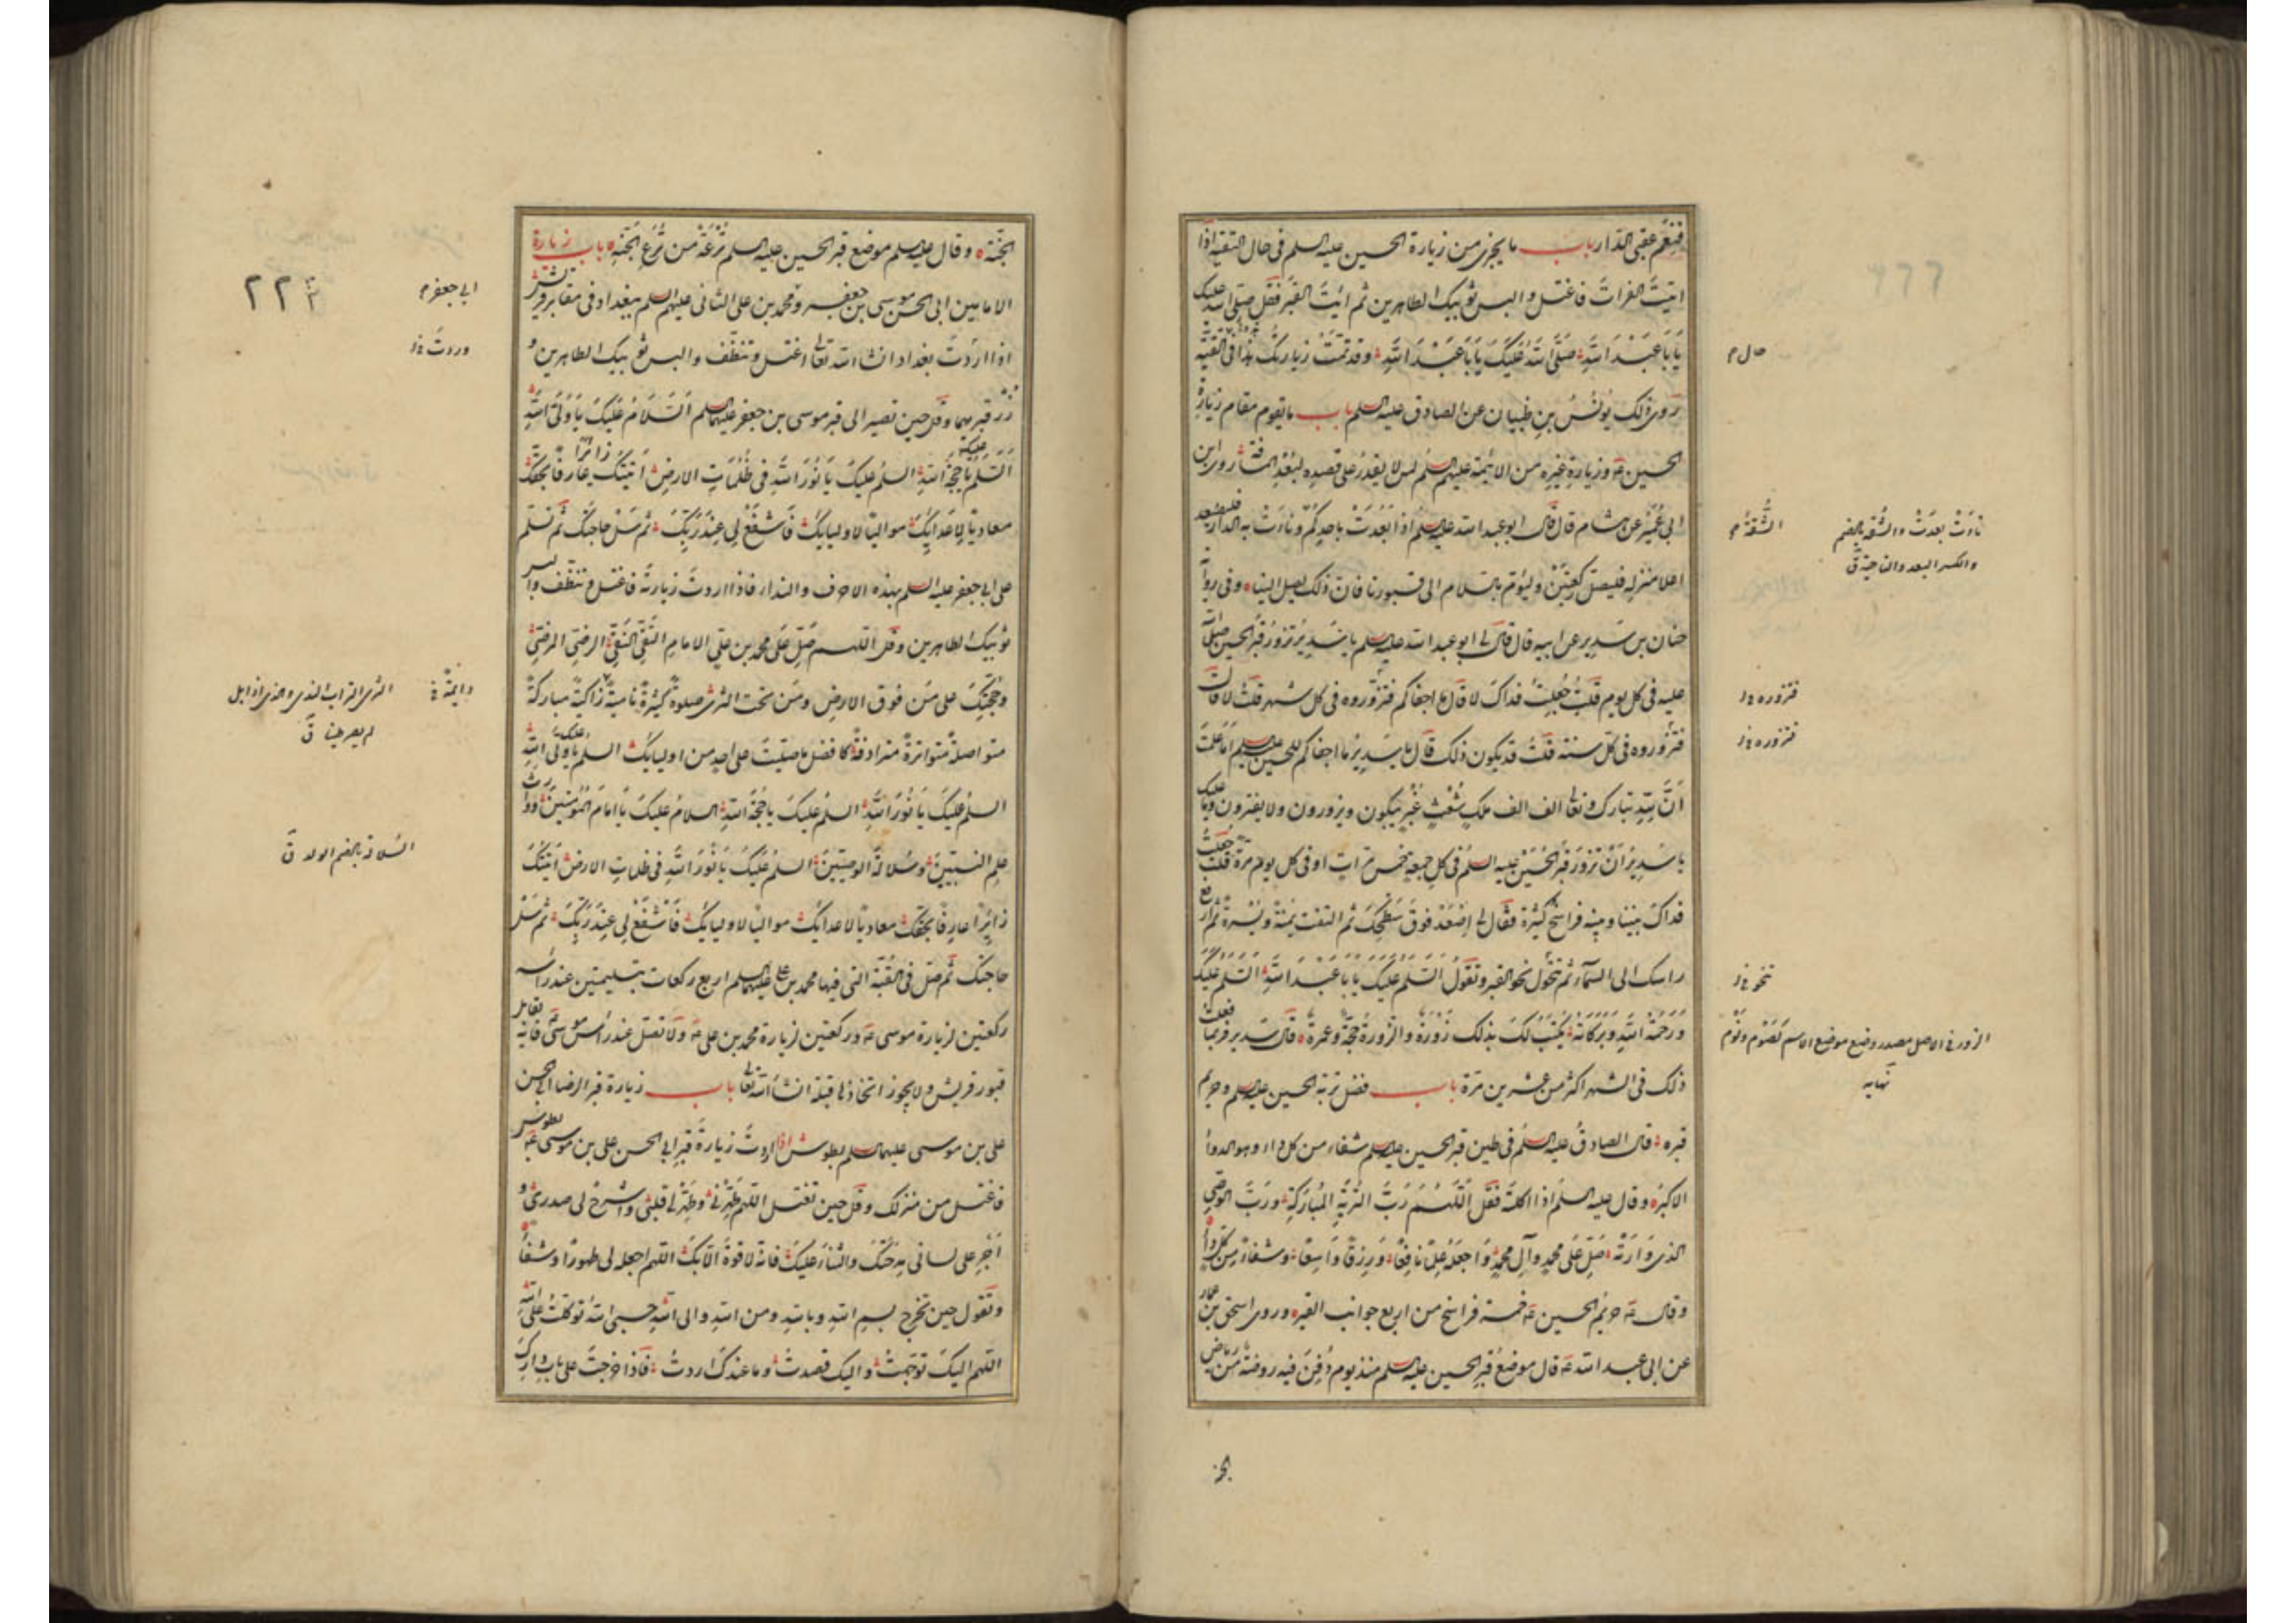 فنعم عقبى الدار باب ما يجزى من زيارة الحسين عليه السلم في حال التقية اذا
اتيت الفرات فاغتسل والبس ثوبيك الطاهرين ثم ائت القبر فقل صلى الله عليك
يا با عبد الله صلى الله عليك يا با عبد الله وقد تمت زيارتك هذا في التقية
روى ذلك يونس بن ظبيان عن الصادق عليه السلم باب ما يقوم مقام زيارة
الحسين ع وزيارة غيره من الائمة عليهم السلم لمن لا يقدر على قصده لبعد المسافة روى ابن
ابي عمير عن هشام قال قال ابو عبد الله عليه السلم اذا بعدت باحدكم ونأت به الدار فليصعد
اعلا منزله فليصل ركعتين وليؤم بالسلام الى قبورنا فان ذلك يصل الينا وفي رواية
حنان بن سدير عن ابيه قال قال لي ابو عبد الله عليه السلم يا سدير تزور قبر الحسين صلوات الله
عليه في كل يوم قلت جعلت فداك لا قال ما اجفاكم فتزوروه في كل شهر قلت لا قال
فتزوروه في كل سنة قلت قد يكون ذلك قال يا سدير ما اجفاكم للحسين عليه السلم اما علمت
ان لله تبارك وتعالى الف الف ملك شعث غبر يبكون ويزورون ولا يفترون وما عليك
يا سدير ان تزور قبر الحسين عليه السلم في كل جمعة خمس مرات او في كل يوم مرة قلت جعلت
فداك بيننا وبينه فراسخ كثيرة فقال لي اصعد فوق سطحك ثم التفت يمنة ويسرة ثم ارفع
راسك الى السماء ثم تحول نحو القبر وتقول السلم عليك يا با عبد الله السلم عليك
ورحمة الله وبركاته يكتب لك بذلك زورة والزورة حجة وعمرة قال سدير فربما فعلت
ذلك في الشهر اكثر من عشرين مرة باب فضل تربة الحسين عليه السلم وحريم
قبره قال الصادق عليه السلم في طين قبر الحسين عليه السلم شفاء من كل داء وهو الدواء
الاكبر وقال عليه السلم اذا اكلته فقل اللهم رب التربة المباركة ورب الوصي
الذي وارته صل على محمد وآل محمد واجعله علما نافعا ورزقا واسعا وشفاء من كل داء
وقال ع حريم الحسين ع خمسة فراسخ من اربع جوانب القبر وروى اسحق بن عمار
عن ابي عبد الله ع قال موضع قبر الحسين عليه السلم منذ يوم دفن فيه روضة من رياض
حال م
الشقة م
نأت بعدت والشقة بالضم
والكسر البعد والناحية ق
فتزوره خ ل
فتزوره خ ل
نحو خ ل
الزور في الاصل مصدر وضع موضع الاسم كصوم ونوم
نهاية
الجنة
الجنة وقال عليه السلم موضع قبر الحسين عليه السلم ترعة من ترع الجنة باب زيارة
الامامين ابي الحسن موسى بن جعفر ومحمد بن علي الثاني عليهم السلم ببغداد في مقابر قريش
اذا اردت بغداد انشاء الله تعالى اغتسل وتنظف والبس ثوبيك الطاهرين و
زر قبريهما وقل حين تصير الى قبر موسى بن جعفر عليهما السلم السلام عليك يا ولي الله
السلم عليك يا حجة الله السلم عليك يا نور الله في ظلمات الارض اتيتك زائرا عارفا بحقك
معاديا لاعدائك مواليا لاوليائك فاشفع لي عند ربك ثم سل حاجتك ثم تسلم
على ابي جعفر عليه السلم بهذه الاحرف والنداء فاذا اردت زيارته فاغتسل وتنظف والبس
ثوبيك الطاهرين وقل اللهم صل على محمد بن علي الامام التقي النقي الرضي المرضي
وحجتك على من فوق الارض ومن تحت الثرى صلوة كثيرة نامية زاكية مباركة
متواصلة متواترة مترادفة كافضل ما صليت على احد من اوليائك السلم عليك يا ولي الله
السلم عليك يا نور الله السلم عليك يا حجة الله السلام عليك يا امام المؤمنين ووارث
علم النبيين وسلالة الوصيين السلم عليك يا نور الله في ظلمات الارض اتيتك
زائرا عارفا بحقك معاديا لاعدائك مواليا لاوليائك فاشفع لي عند ربك ثم سل
حاجتك ثم صل في القبة التي فيها محمد بن علي عليهما السلم اربع ركعات بتسليمتين عند راسه
ركعتين لزيارة موسى ع وركعتين لزيارة محمد بن علي ع ولا تصل عند راس موسى ع فانه يقابل
قبور قريش ولا يجوز اتخاذها قبلة انشاء الله تعالى باب زيارة قبر الرضا ابي الحسن
علي بن موسى عليهما السلم بطوس اذا اردت زيارة قبر ابي الحسن علي بن موسى ع بطوس
فاغتسل من منزلك وقل حين تغتسل اللهم طهرني وطهر لي قلبي واشرح لي صدري و
اجر على لساني مدحتك والثناء عليك فانه لا قوة الا بك اللهم اجعله لي طهورا وشفاء
وتقول حين تخرج بسم الله وبالله ومن الله والى الله حسبي الله توكلت على الله
اللهم اليك توجهت واليك قصدت وما عندك اردت فاذا خرجت على باب دارك
ابي جعفر م
٢٢٣
وردت خ ل
دائمة خ
الثرى التراب الندي والذي اذا بل
لم يصر طينا ق
السلالة بالضم الولد ق